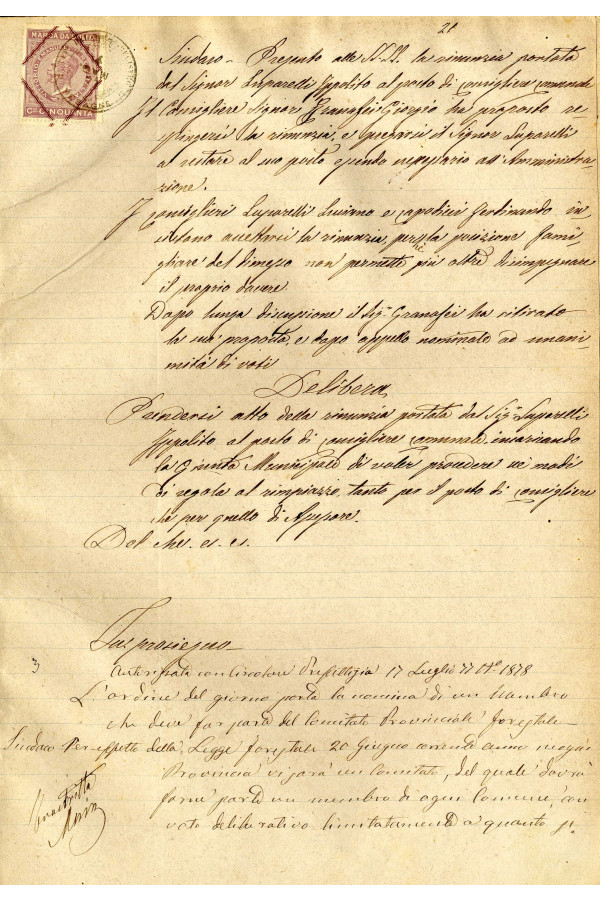 21
MARCA DA BOLLO
C. CINQUANTA
Sindaco - Presento alle SS.LL. la rinunzia portata
dal Signor Luparelli Ippolito al posto di consigliere comunale
Il Consigliere Signor Granafei Giorgio ha proposto re-
spingersi la rinunzia, e pregarsi il Signor Luparelli
a restare al suo posto essendo necessario all'Amministra-
zione.
I consiglieri Luparelli Luciano e Capodieci Ferdinando in-
sistono accettarsi la rinunzia, perchè la posizione fami-
gliare del dimesso non permette più oltre disimpegnare
il proprio dovere
Dopo lunga discussione il Sig.r Granafei ha ritirato
la sua proposta, e dopo appello nominale ad unani-
mità di voti
Delibera
Prendersi atto della rinunzia portata dal Sig.r Luparelli
Ippolito al posto di consigliere comunale, incaricando
la Giunta Municipale di voler procedere nei modi
di regola al rimpiazzo, tanto per il posto di consigliere
che per quello di Assessore.
Del che. es. es.
In prosieguo
3
Autorizzata con Circolare Prefettizia 17 Luglio 1878
L'ordine del giorno porta la nomina di un membro
che deve far parte del Comitato Provinciale forestale
Sindaco Per effetto della Legge forestale 20 Giugno corrente anno in ogni
Provincia vi sarà un Comitato, del quale dovrà
farne parte un membro di ogni Comune, con
voto deliberativo limitatamente a quanto